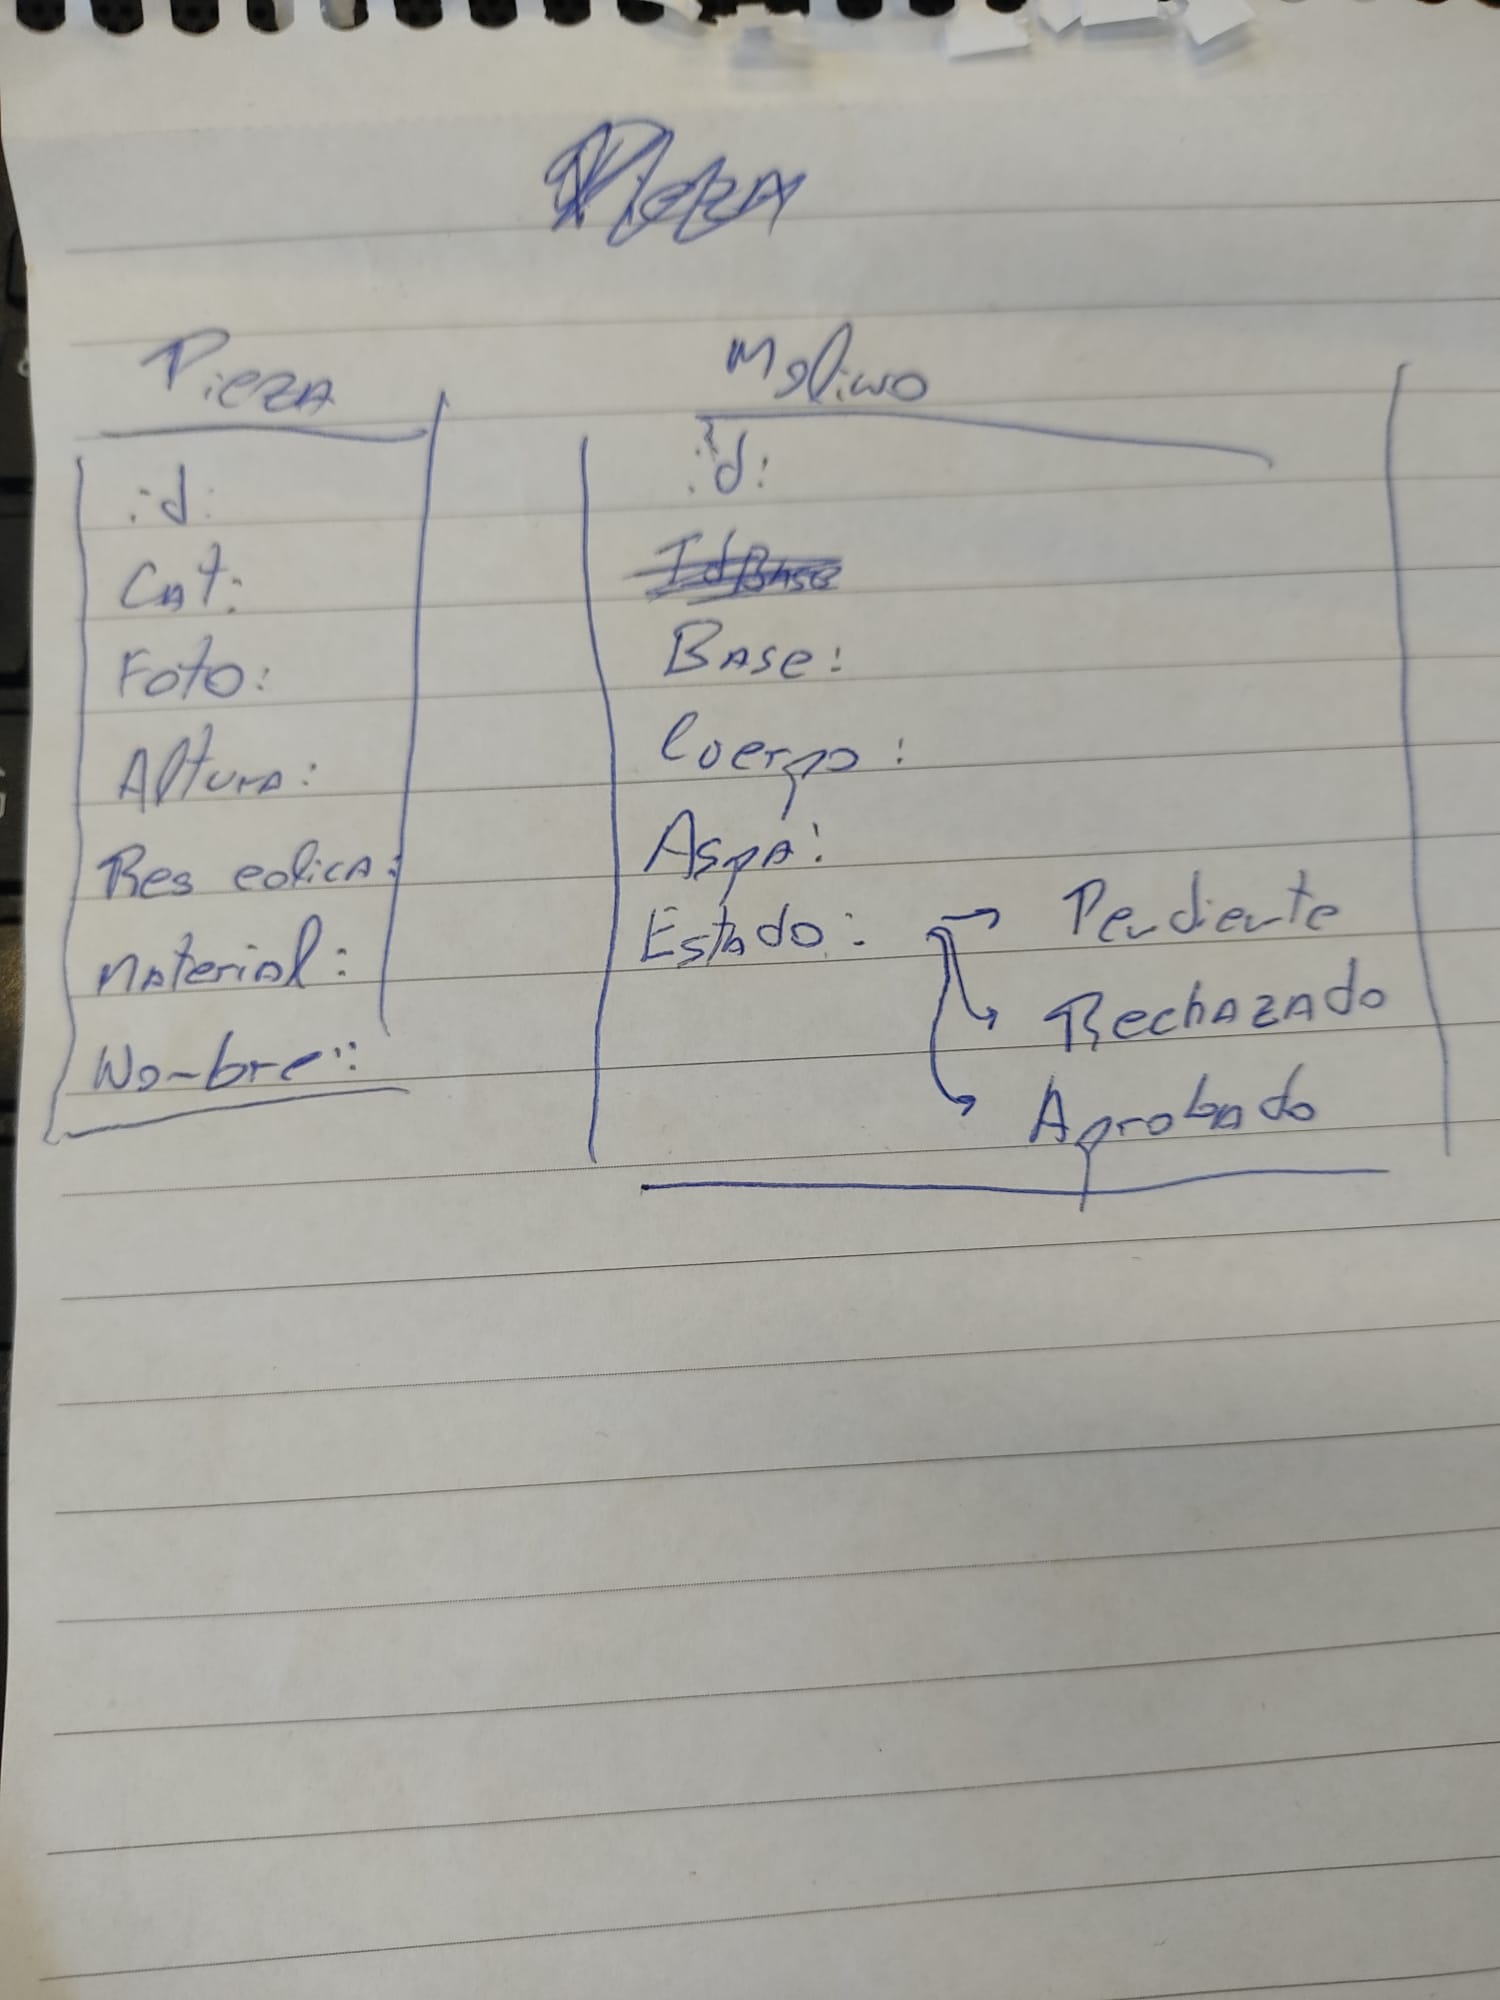 Pieza
Pieza
id:
Cat:
Foto:
Altura:
Res eolica:
Material:
Nombre:
Molino
id:
IdBase
Base:
Cuerpo:
Aspa:
Estado: → Pendiente
Rechazado
Aprobado